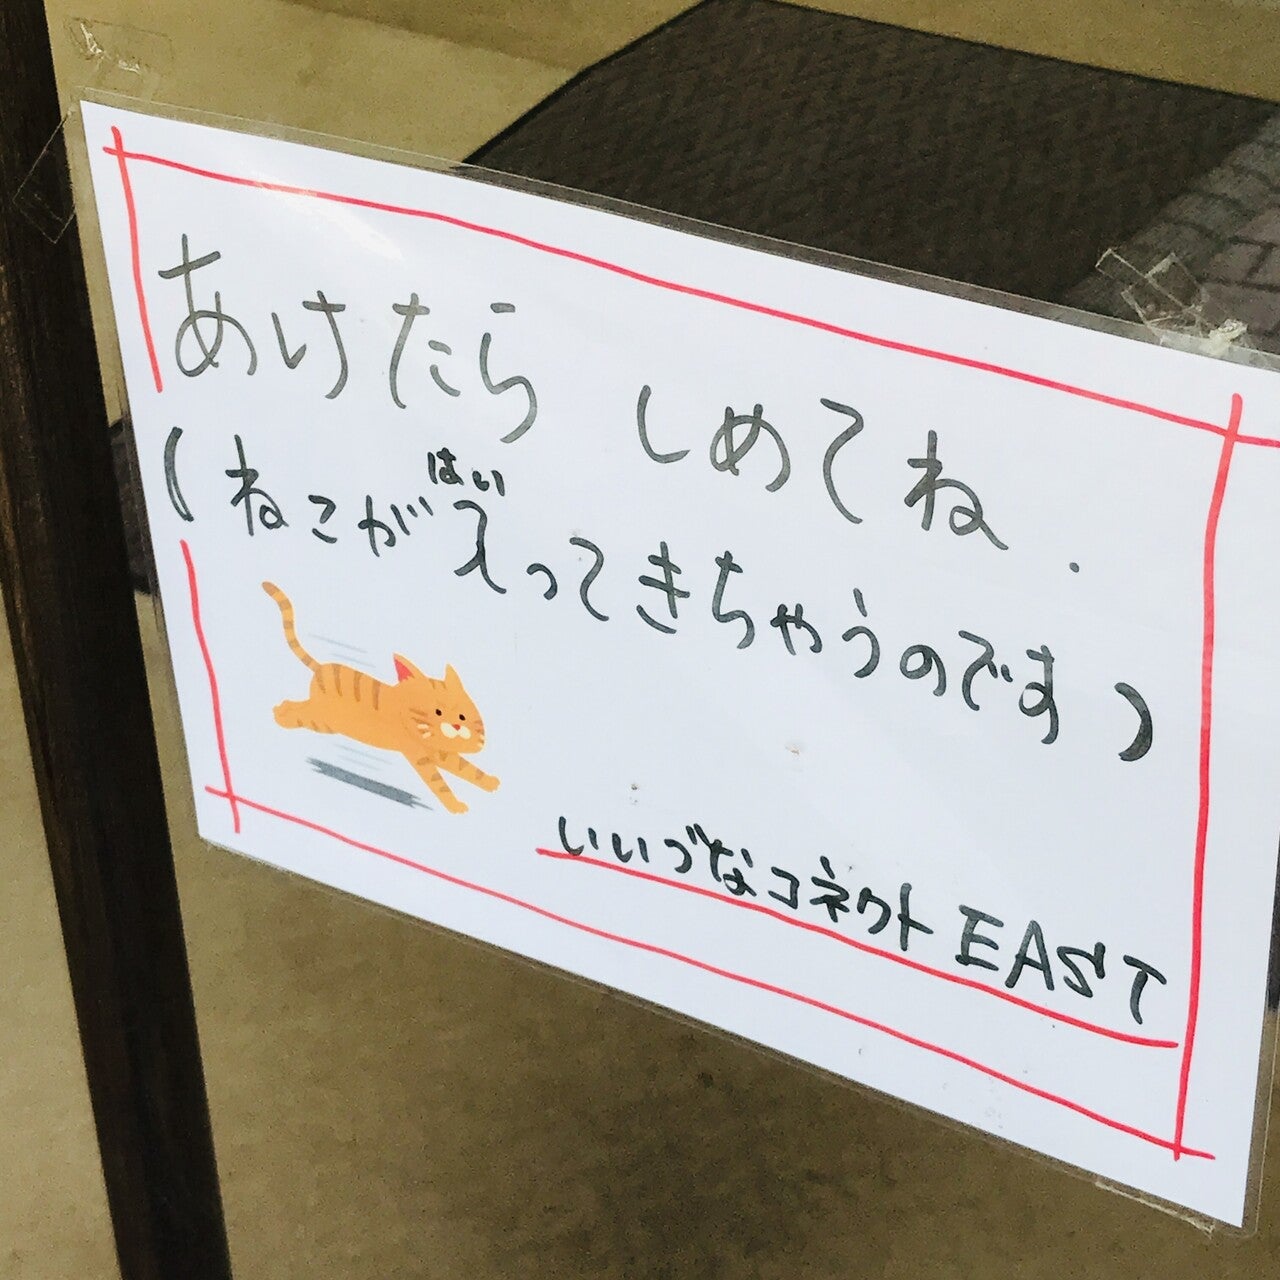 あけたら しめてね.
(ねこが入ってきちゃうのです)
はい
いいづなコネクト EAST